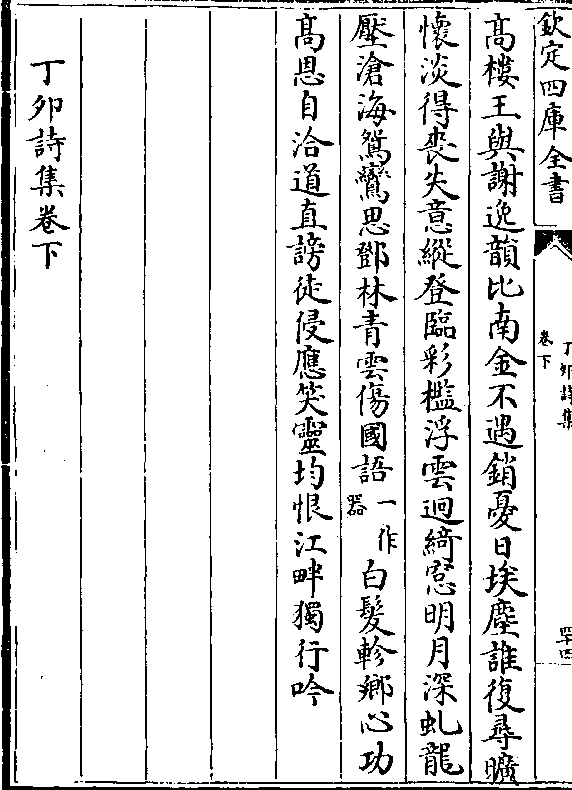 欽定四庫全書
丁卯詩集
卷下
四十四
高樓王與謝逸韻比南金不遇銷憂日埃塵誰復尋曠
懷淡得喪失意縱登臨彩檻浮雲迥綺窻明月深虬龍
壓滄海鴛鸞思鄧林青雲傷國語一作器白髮軫鄉心功
高恩自洽道直謗徒侵應笑靈均恨江畔獨行吟
丁卯詩集卷下